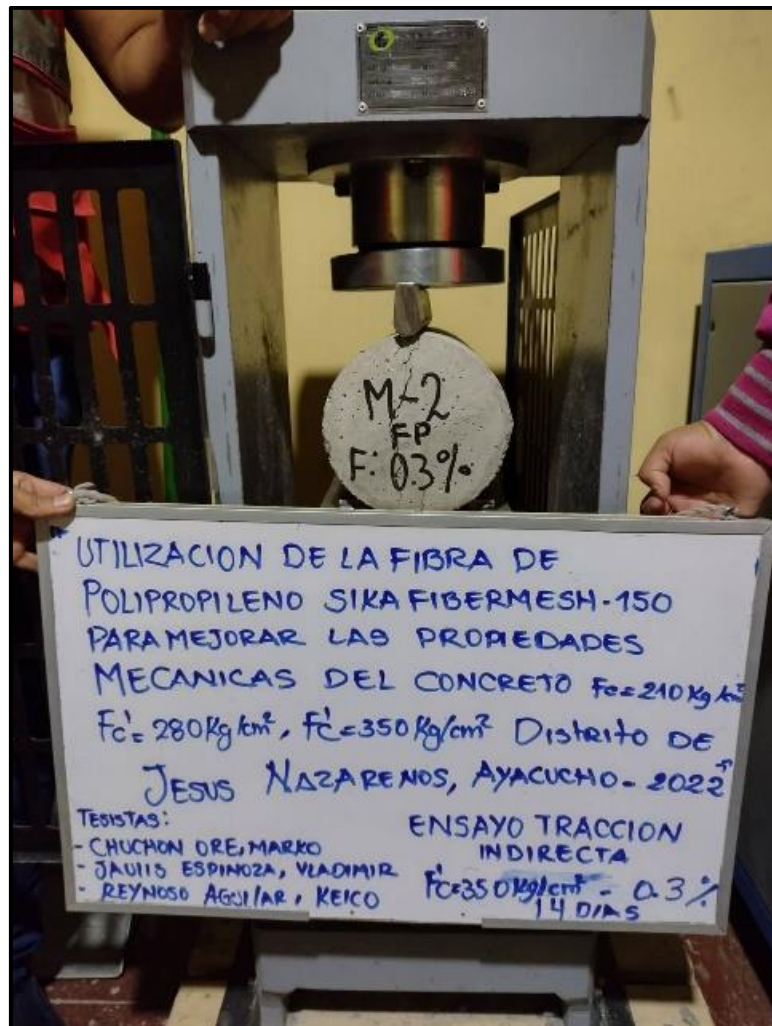 M-2
FP
F: 0.3%
"UTILIZACION DE LA FIBRA DE
POLIPROPILENO SIKA FIBERMESH-150
PARA MEJORAR LAS PROPIEDADES
MECANICAS DEL CONCRETO Fc=210 Kg/cm²
F'c=280Kg/cm², F'c=350Kg/cm² Distrito DE
JESUS NAZARENOS, AYACUCHO-2022"
TESISTAS:
- CHUCHON ORE, MARKO
- JAULIS ESPINOZA, VLADIMIR
- REYNOSO AGUILAR, KEICO
ENSAYO TRACCION
INDIRECTA
F'c=350kg/cm² - 0.3%
14 DIAS